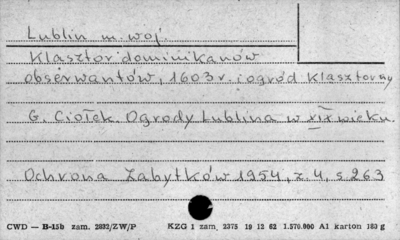 Lublin m. woj.
Klasztor dominikanów
obserwantów, 1603 r. i ogród klasztorny
G. Ciołek. Ogrody Lublina w XIX wieku.
Ochrona Zabytków 1954, z. 4, s 263
CWD — B-15b zam. 2932/ZW/P KZG 1 zam. 2375 19 12 62 1.570.000 A1 karton 180 g